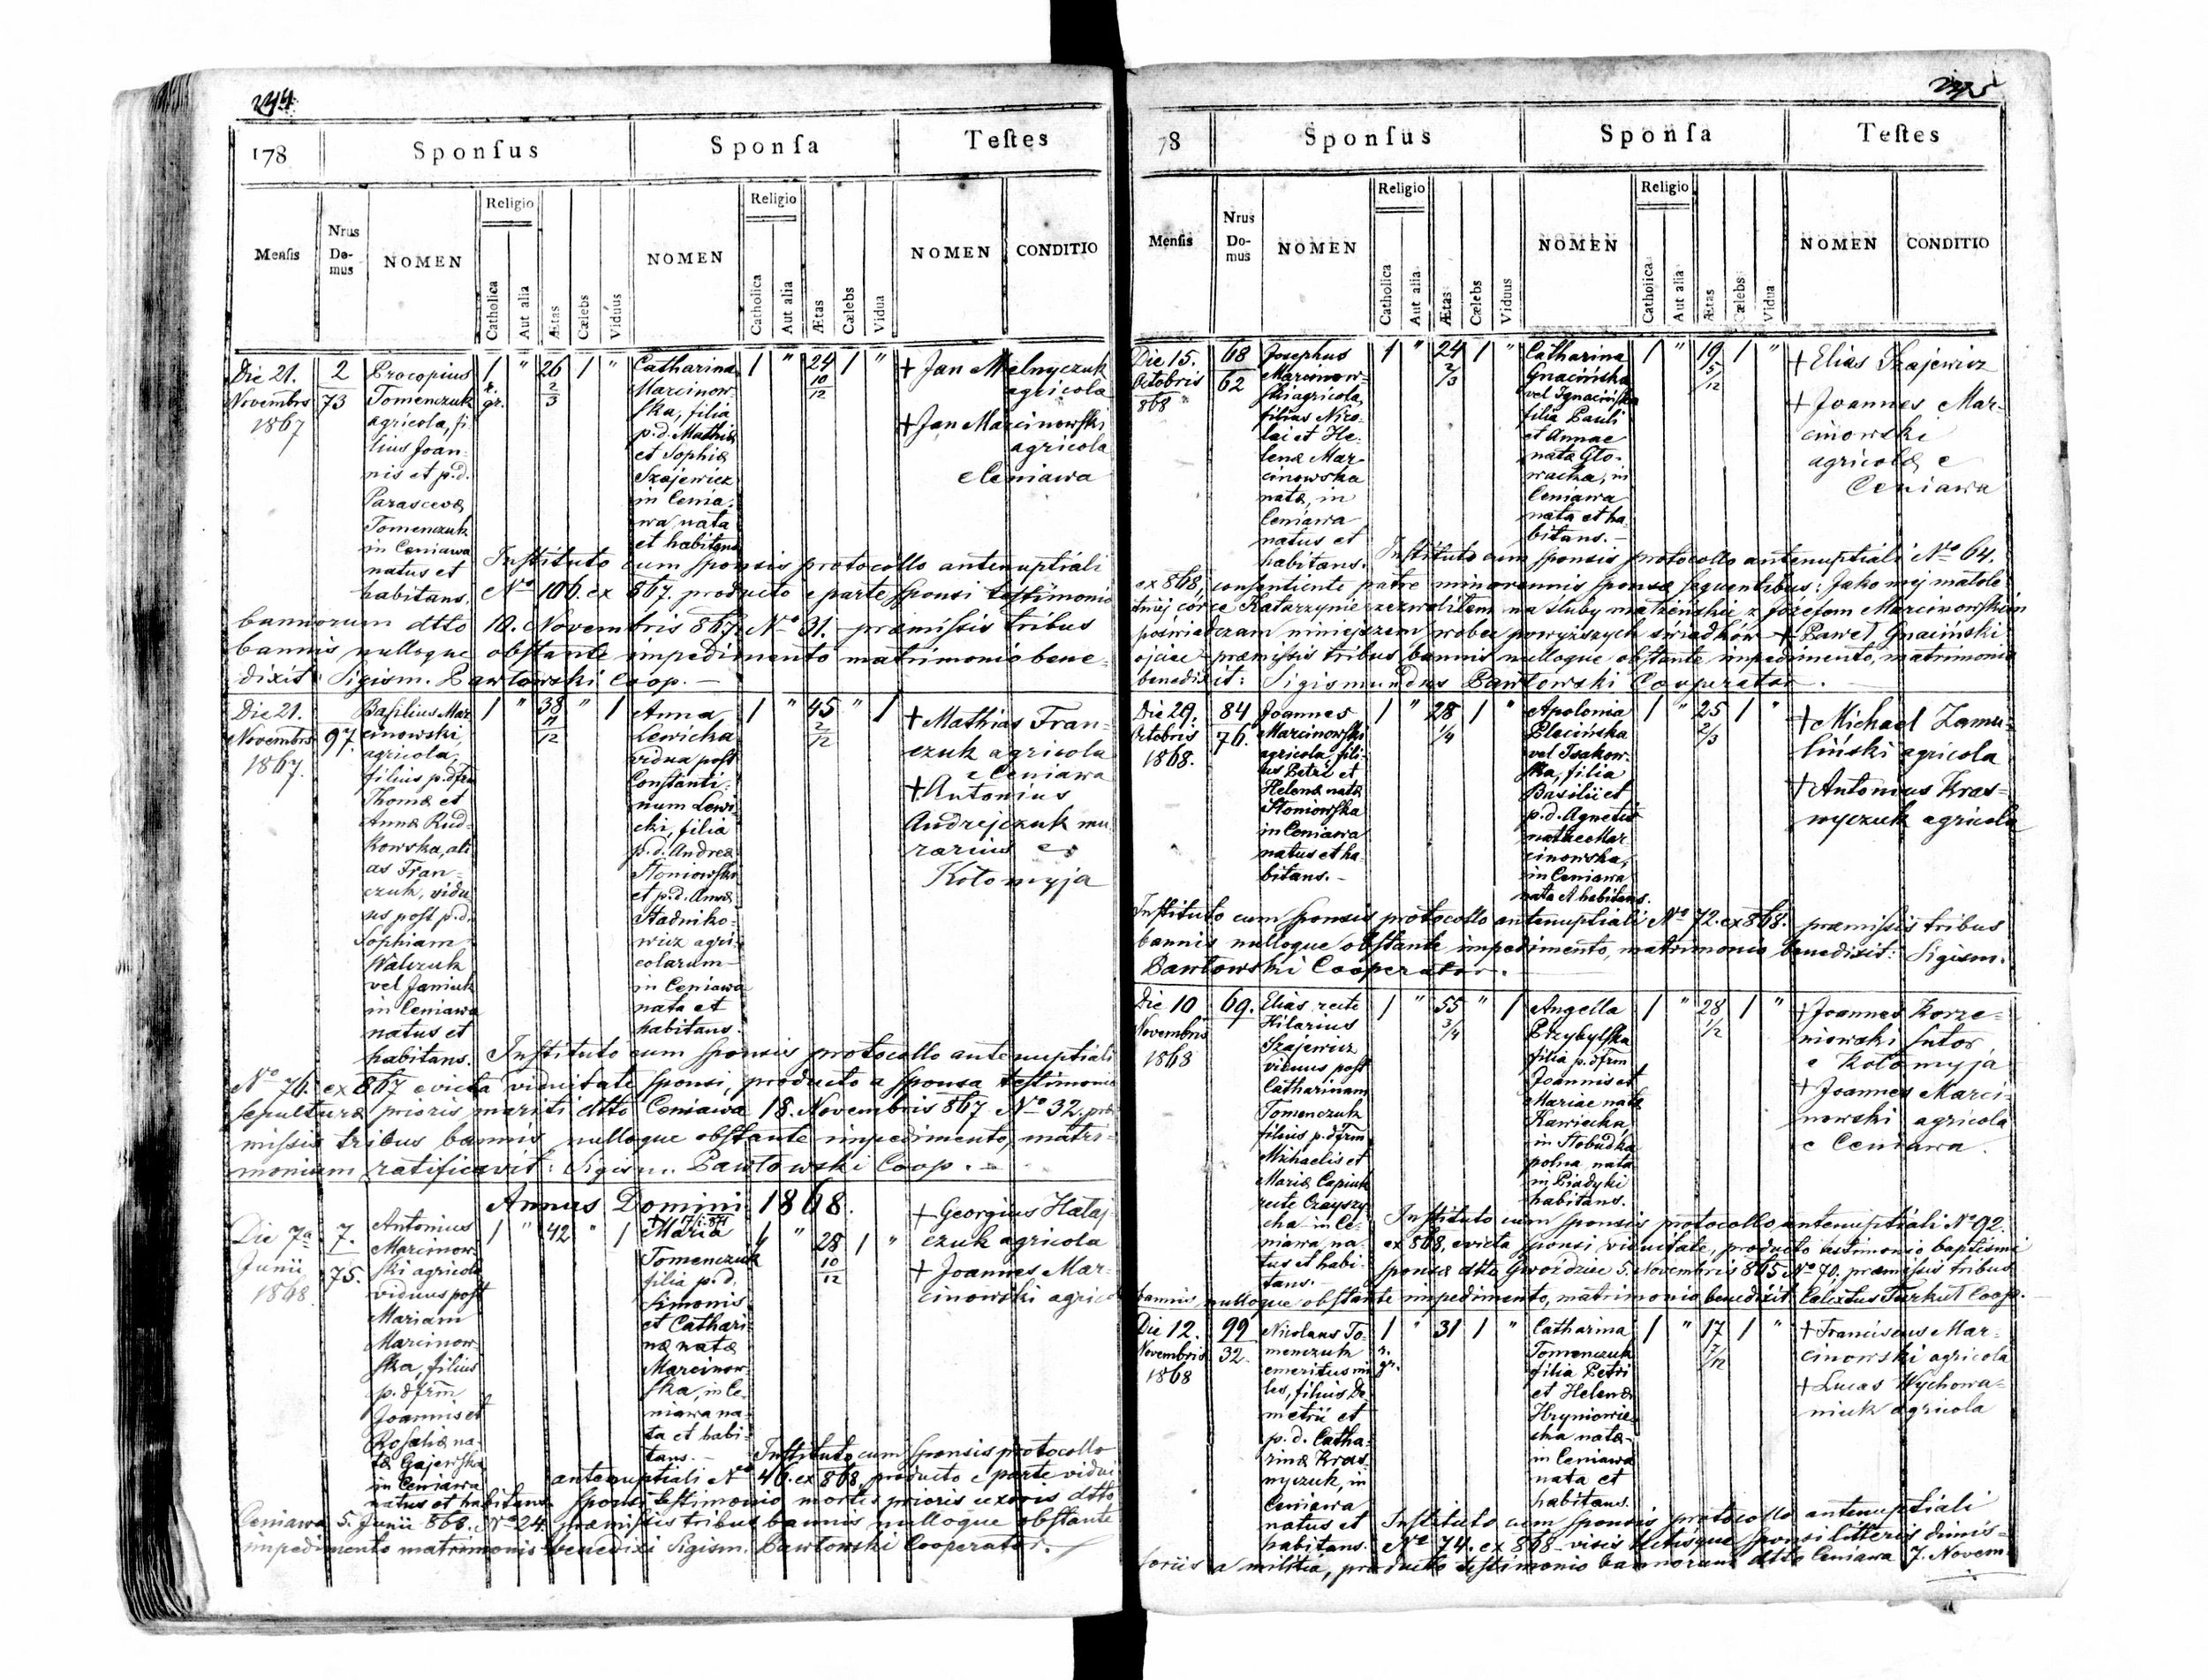 244
178
Sponſus
Sponſa
Teſtes
Menſis
Nrus Domus
NOMEN
Religio
Catholica
Aut alia
Ætas
Cælebs
Viduus
NOMEN
Religio
Catholica
Aut alia
Ætas
Cælebs
Vidua
NOMEN
CONDITIO
Die 21.
Novembris
1867
2
73
Procopius
Tomenczuk
agricola, fi-
lius Joan-
nis et p.d.
Parascevæ
Tomenczuk
in Ceniawa
natus et
habitans.
1 r. gr. " 26 2/3 1 "
Catharina
Marcinow-
ska, filia
p.d. Mathiæ
et Sophiæ
Szajewicz
in Cenia-
wa nata
et habitans
1 " 24 10/12 1 "
+ Jan Melnyczuk
agricola
+ Jan Marcinowski
agricola
e Ceniawa
Instituto cum sponsis protocollo antenuptiali
No 106. ex 867. producto e parte sponsi testimonio
bannorum dtto 10. Novembris 867 No 31. præmissis tribus
bannis nulloque obstante impedimento matrimonio bene-
dixit: Sigism. Pawłowski Coop. —
Die 21.
Novembris
1867.
97.
Basilius Mar
cinowski,
agricola,
filius p. dfm
Thomæ et
Annæ Rud-
kowska, ali
as Fran-
czuk, vidu
us post p.d.
Sophiam
Walczuk
vel Janiuk
in Ceniawa
natus et
habitans.
1 " 38 11/12 " 1
Anna
Lewicka
vidua post
Constanti-
num Lewi-
cki, filia
p.d. Andreæ
Słoniowski
et p.d. Annæ
Stadniko-
wicz agri-
colarum
in Ceniawa
nata et
habitans.
1 " 45 2/12 " 1
+ Mathias Fran-
czuk agricola
e Ceniawa
+ Antonius
Andrejczuk mu
rarius e
Kołomyja
Instituto cum sponsis protocollo antenuptiali
No 76. ex 867 evicta viduitate sponsi, producto a sponsa testimonio
sepulturæ prioris mariti dtto Ceniawa 18. Novembris 867 No 32. præ
missis tribus bannis nulloque obstante impedimento, matri-
monium ratificavit: Sigism. Pawłowski Coop. —
Annus Domini 1868.
Die 7a
Junii
1868
7.
75.
Antonius
Marcinow-
ski agricola
viduus post
Mariam
Marcinow
ska, filius
p. dfm
Joannis et
Rosaliæ na-
tæ Gajewska
in Ceniawa
natus et habitans
1 " 42 " 1
Maria
Tomenczuk
filia p.d.
Simonis
et Cathari-
næ natæ
Marcinow-
ska, in Ce-
niawa na-
ta et habi-
tans. —
1 " 28 10/12 1 "
+ Georgius Hataj-
czuk agricola
+ Joannes Mar-
cinowski agricola
Instituto cum sponsis protocollo
antenuptiali No 46. ex 868, producto e parte vidui
sponsi testimonio mortis prioris uxoris dtto
Ceniawa 5. Junii 868. No 24. præmissis tribus bannis nulloque obstante
impedimento matrimonio benedixi Sigism. Pawłowski Cooperator.
78
Sponſus
Sponſa
Teſtes
Menſis
Nrus Domus
NOMEN
Religio
Catholica
Aut alia
Ætas
Cælebs
Viduus
NOMEN
Religio
Catholica
Aut alia
Ætas
Cælebs
Vidua
NOMEN
CONDITIO
Die 15.
Octobris
868
68
62
Josephus
Marcinow-
ski agricola,
filius Nico-
lai et He-
lenæ Mar
cinowska
natæ, in
Ceniawa
natus et
habitans.
1 " 24 2/3 1 "
Catharina
Gnacińska
vel Ignacińska
filia Pauli
et Annae
nata Gło-
wacka, in
Ceniawa
nata et ha-
bitans. —
1 " 19 5/12 1 "
+ Elias Szajewicz
+ Joannes Mar-
cinowski
agricolæ e
Ceniawa
Instituto cum sponsis protocollo antenuptiali No 64.
ex 868, consentiente patre minorennis sponsæ sequentibus: Jako mej małole-
tniej córce Katarzynie zezwoliłem na śluby małżeńskie z Józefom Marcinowskim
poświadczam niniejszem wobec powyższych świadków + Paweł Gnaciński
ojciec præmissis tribus bannis nulloque obstante impedimento, matrimonio
benedixit: Sigismundus Pawłowski Cooperator.
Die 29.
Octobris
1868.
84
76.
Joannes
Marcinowski
agricola, fili-
us Petri et
Helenæ natæ
Słoniowska
in Ceniawa
natus et ha-
bitans. —
1 " 28 1/4 1 "
Apolonia
Placińska
vel Isakow-
ska, filia
Basilii et
p.d. Agnetis
natae Mar-
cinowska,
in Ceniawa
nata et habitans.
1 " 25 2/3 1 "
+ Michael Zamu-
liński agricola
+ Antonius Kras-
nyczuk agricola
Instituto cum sponsis protocollo antenuptiali No 72. ex 868. præmissis tribus
bannis nulloque obstante impedimento, matrimonio benedixit: Sigism.
Pawłowski Cooperator.
Die 10
Novembris
1868
69.
Elias recte
Hilarius
Szajewicz
viduus post
Catharinam
Tomenczuk
filius p. dfm
Michaelis et
Mariæ Capiuk
recte
in Ce-
niawa na-
tus et habi-
tans. —
1 " 55 3/4 " 1
Angella
Przybylska
filia p. dfm
Joannis et
Mariae natæ
Kawiecka,
in Słobudka
polna nata
in Piadyki
habitans.
1 " 28 1/2 1 "
+ Joannes Korze-
niowski sutor
e Kołomyja
+ Joannes Marci-
nowski agricola
e Ceniawa.
Instituto cum sponsis protocollo antenuptiali No 92.
ex 868, evicta sponsi viduitate, producto testimonio baptismi
sponsæ dtto Gwoździec 5. Novembris 865 No 70. præmissis tribus
bannis nulloque obstante impedimento, matrimonio benedixit Calixtus Turkuł Coop.
Die 12.
Novembris
1868
99
32.
Nicolaus To-
menczuk
emeritus mi
les, filius De
metrii et
p.d. Catha-
rinæ Kras-
nyczuk, in
Ceniawa
natus et
habitans.
1 r. gr. " 31 1 "
Catharina
Tomenczuk
filia Petri
et Helenæ
Hryniowie-
cka nata
in Ceniawa
nata et
habitans.
1 " 17 7/12 1 "
+ Franciscus Mar-
cinowski agricola
+ Lucas Wychowa-
niuk agricola
Instituto cum sponsis protocollo antenuptiali
No 74. ex 868 visis lectisque sponsi litteris dimis-
soriis a militia, producto testimonio bannorum dtto Ceniawa 7. Novem-